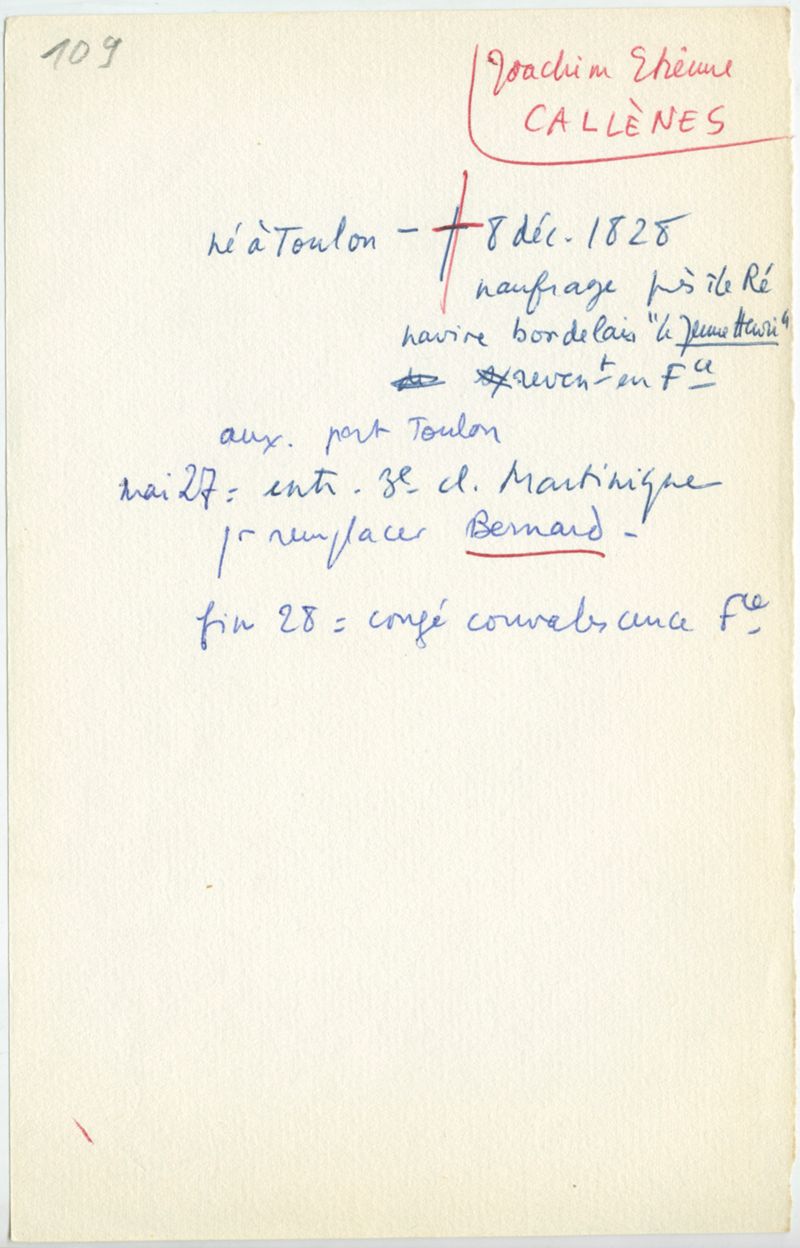 109
Joachim Etienne
CALLÈNES
né à Toulon - † 8 déc. 1828
naufrage près île Ré
navire bordelais "le Jeune Henri"
revent en Fce
aux. port Toulon
mai 27 = entr. 3e cl. Martinique
pr remplacer Bernard -
fin 28 = congé convalescence Fce